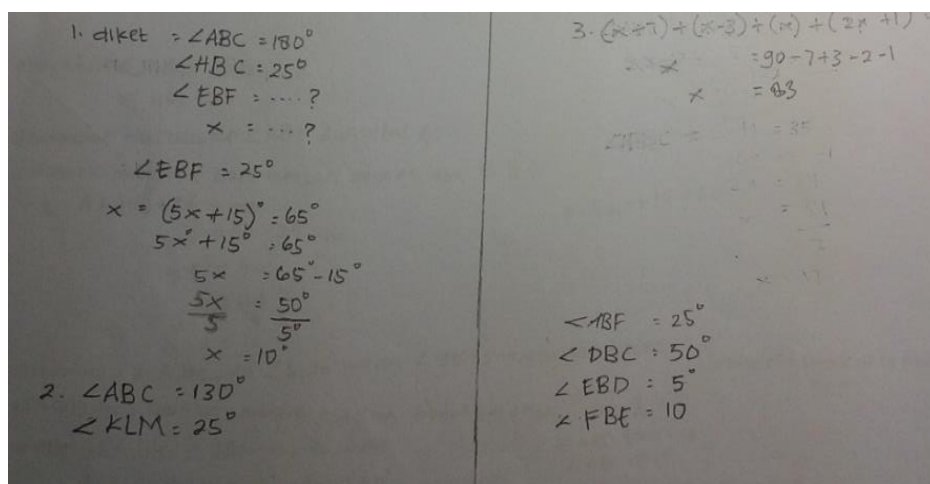 1. diket = ∠ABC = 180°
∠HBC = 25°
∠EBF = ....?
x = ...?
∠EBF = 25°
x = (5x+15)° = 65°
5x° + 15° = 65°
5x = 65° - 15°
5x/5 = 50°/5°
x = 10°
2. ∠ABC = 130°
∠KLM = 25°
3. (x+7) + (x-3) + (x) + (2x+1)°
x = 90-7+3-2-1
x = 83
∠ABF = 25°
∠DBC = 50°
∠EBD = 5°
∠FBE = 10